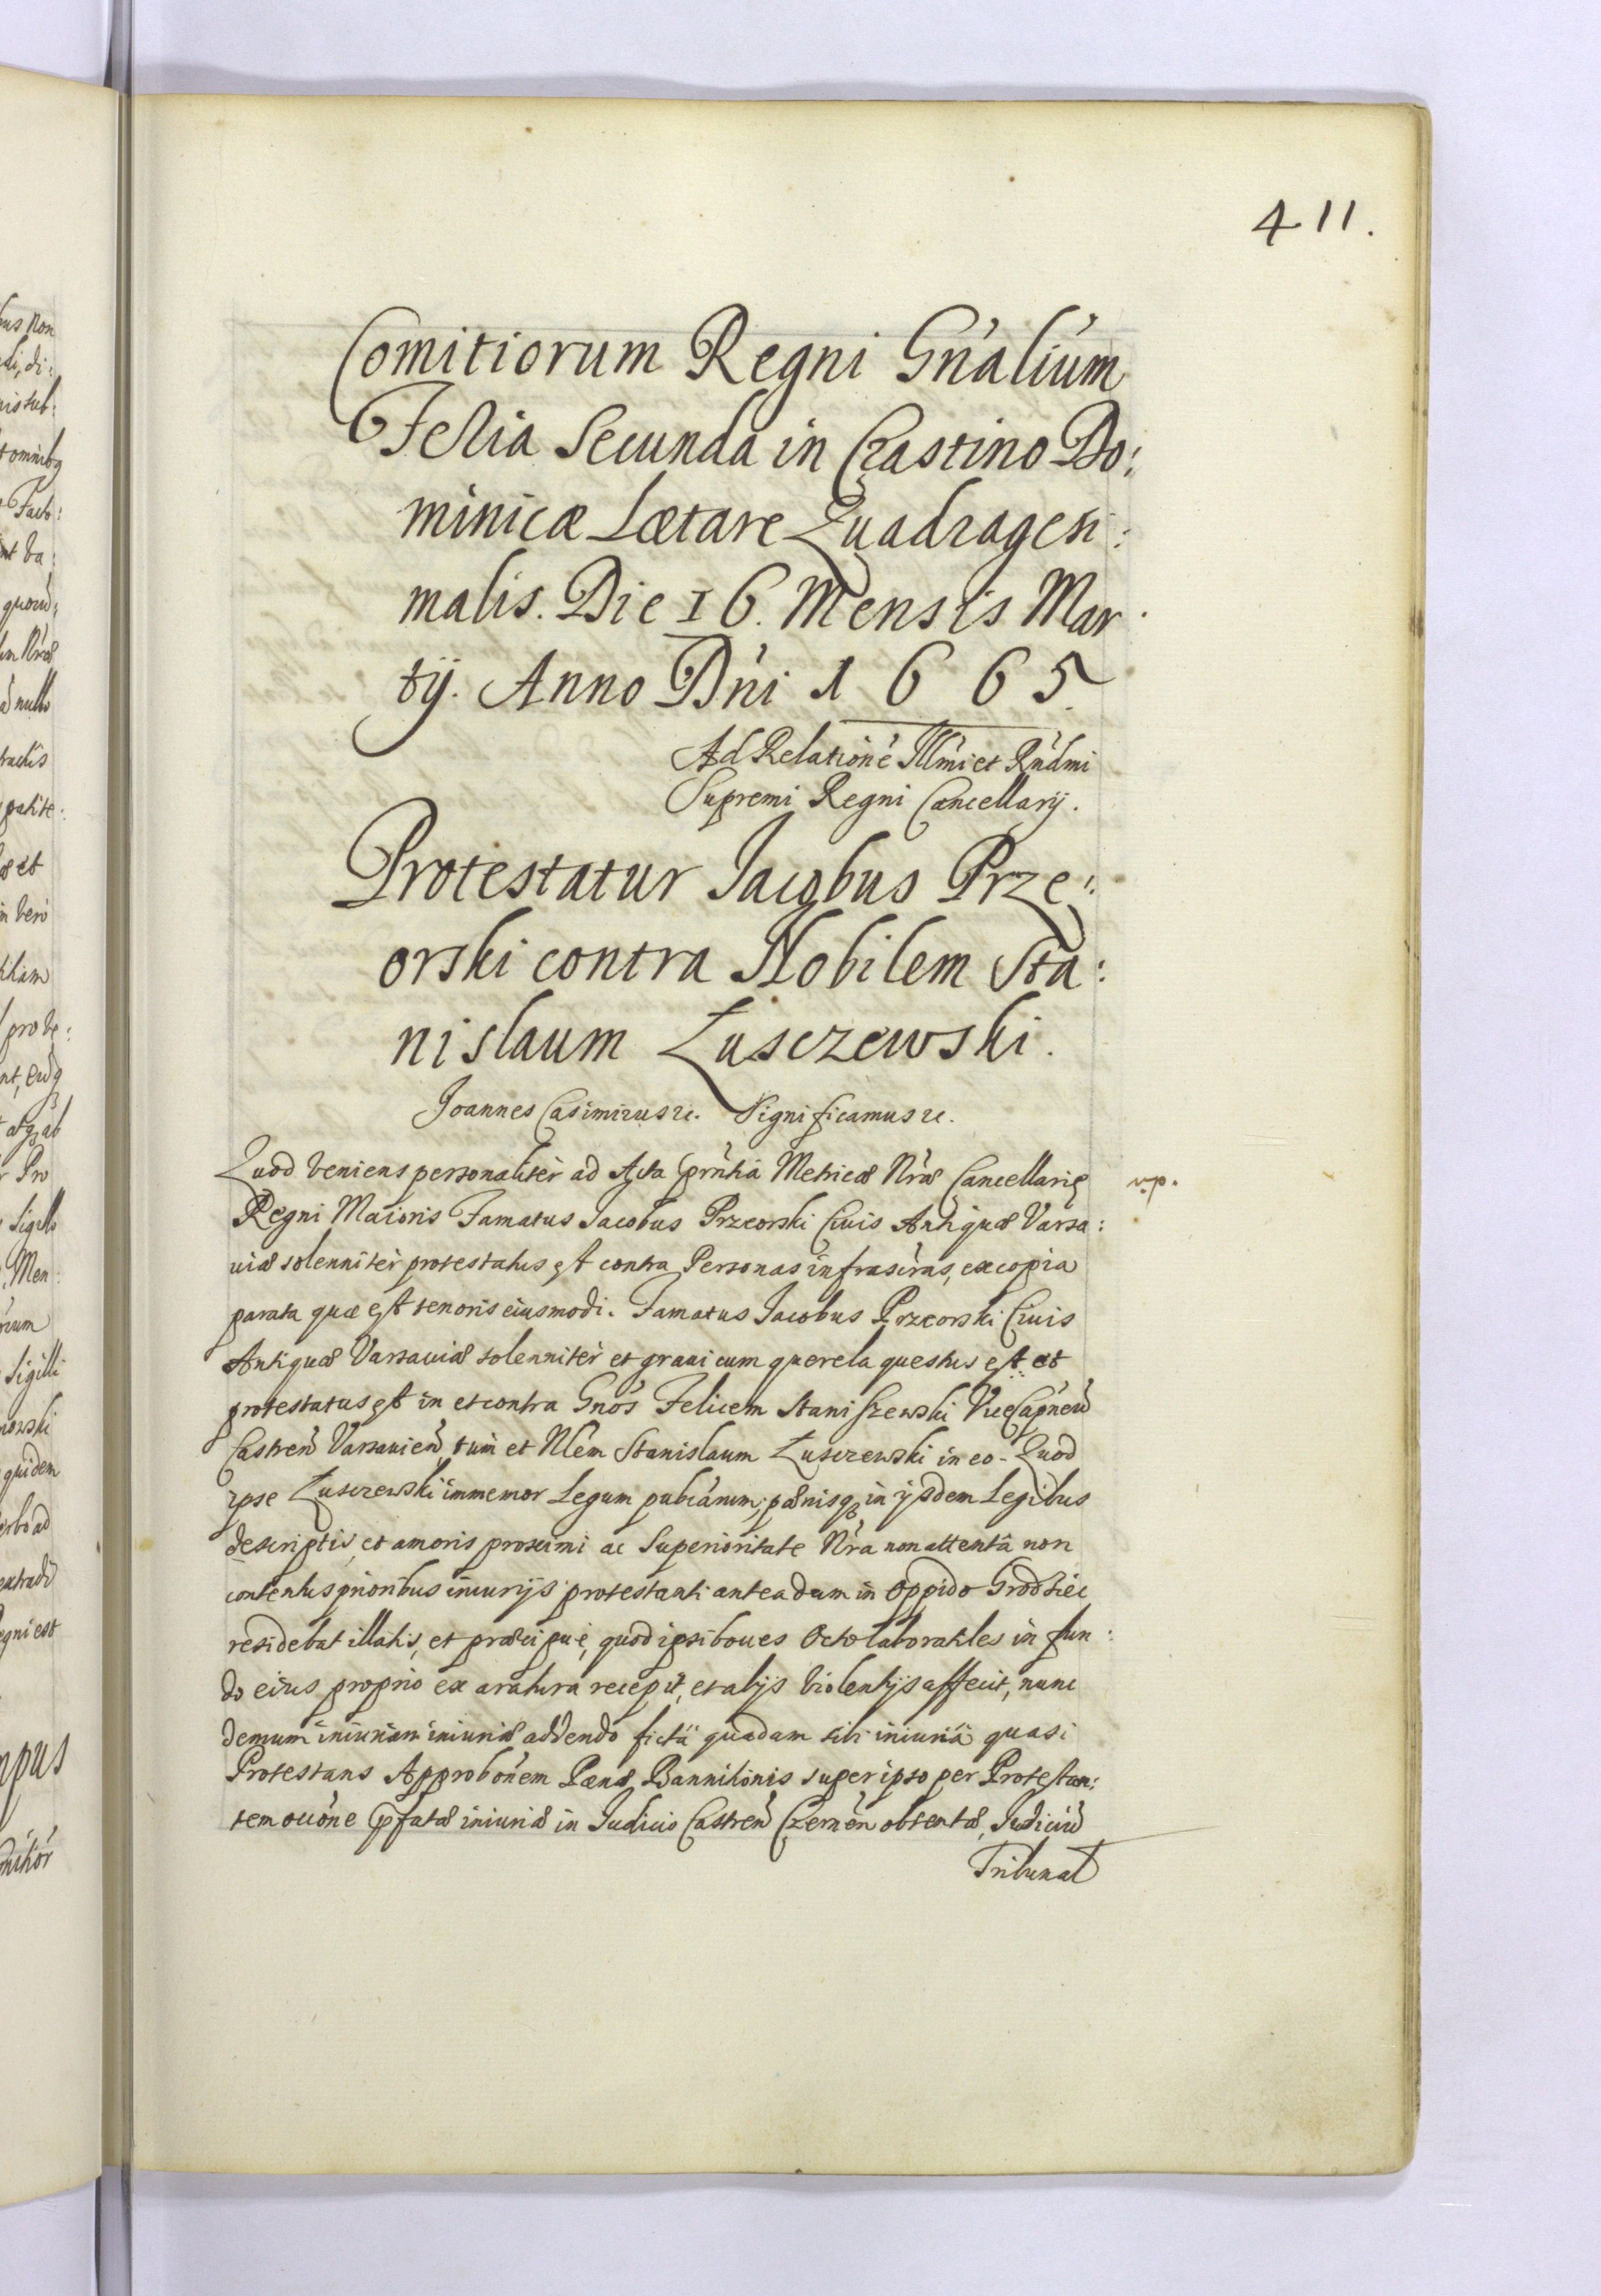 411.
Comitiorum Regni Gn'alium
Feria Secunda in Crastino Do:
minicæ Lætare Quadragesi:
malis. Die 16. Mensis Mar
tij. Anno D'ni 1665.
Ad Relatione' Ill'mi et R'ndmi
Supremi Regni Cancellarij.
Protestatur Jacobus Prze:
orski contra Nobilem Sta:
nislaum Łusczewski.
Joannes Casimirus etc. Significamus etc.
Quod veniens personaliter ad Acta pr'ntia Metricæ N'ræ Cancellariæ
v.p.
Regni Maioris Famatus Jacobus Przeorski Civis Antiquæ Varsa:
uiæ solenniter protestatus est contra Personas infrascr'as, ex copia
parata quæ est tenoris eiusmodi. Famatus Jacobus Przeorski Civis
Antiquæ Varsauiæ solenniter et graui cum querela questus est et
protestatus est in et contra Gn'os Felicem Staniszewski ViceCap'neu'
Castren' Varsauien' tum et N'lem Stanislaum Łusczewski in eo. Quod
ipse Łusczewski immemor Legum publ'carum, pænisq in ijsdem Legibus
descriptis, et amoris proximi ac Superioritate N'ra non attentâ non
contentus prioribus iniurijs protestanti antea dum in Oppido Grodziec
residebat illatis, et præcipuè, quod ipsi boues Octo laborabiles in fun:
do eius proprio ex aratura recepit, et alijs violentijs affecit, nunc
demum iniuriam iniuriæ addendo fictâ quadam sibi iniuriâ quasi
Protestans Approbo'nem Pænæ Bannitionis super ipso per Protestan:
tem o'cc'one p'fatæ iniuriæ in Judicio Castren' Czernen' obtentæ, Judiciu'
Tribunal